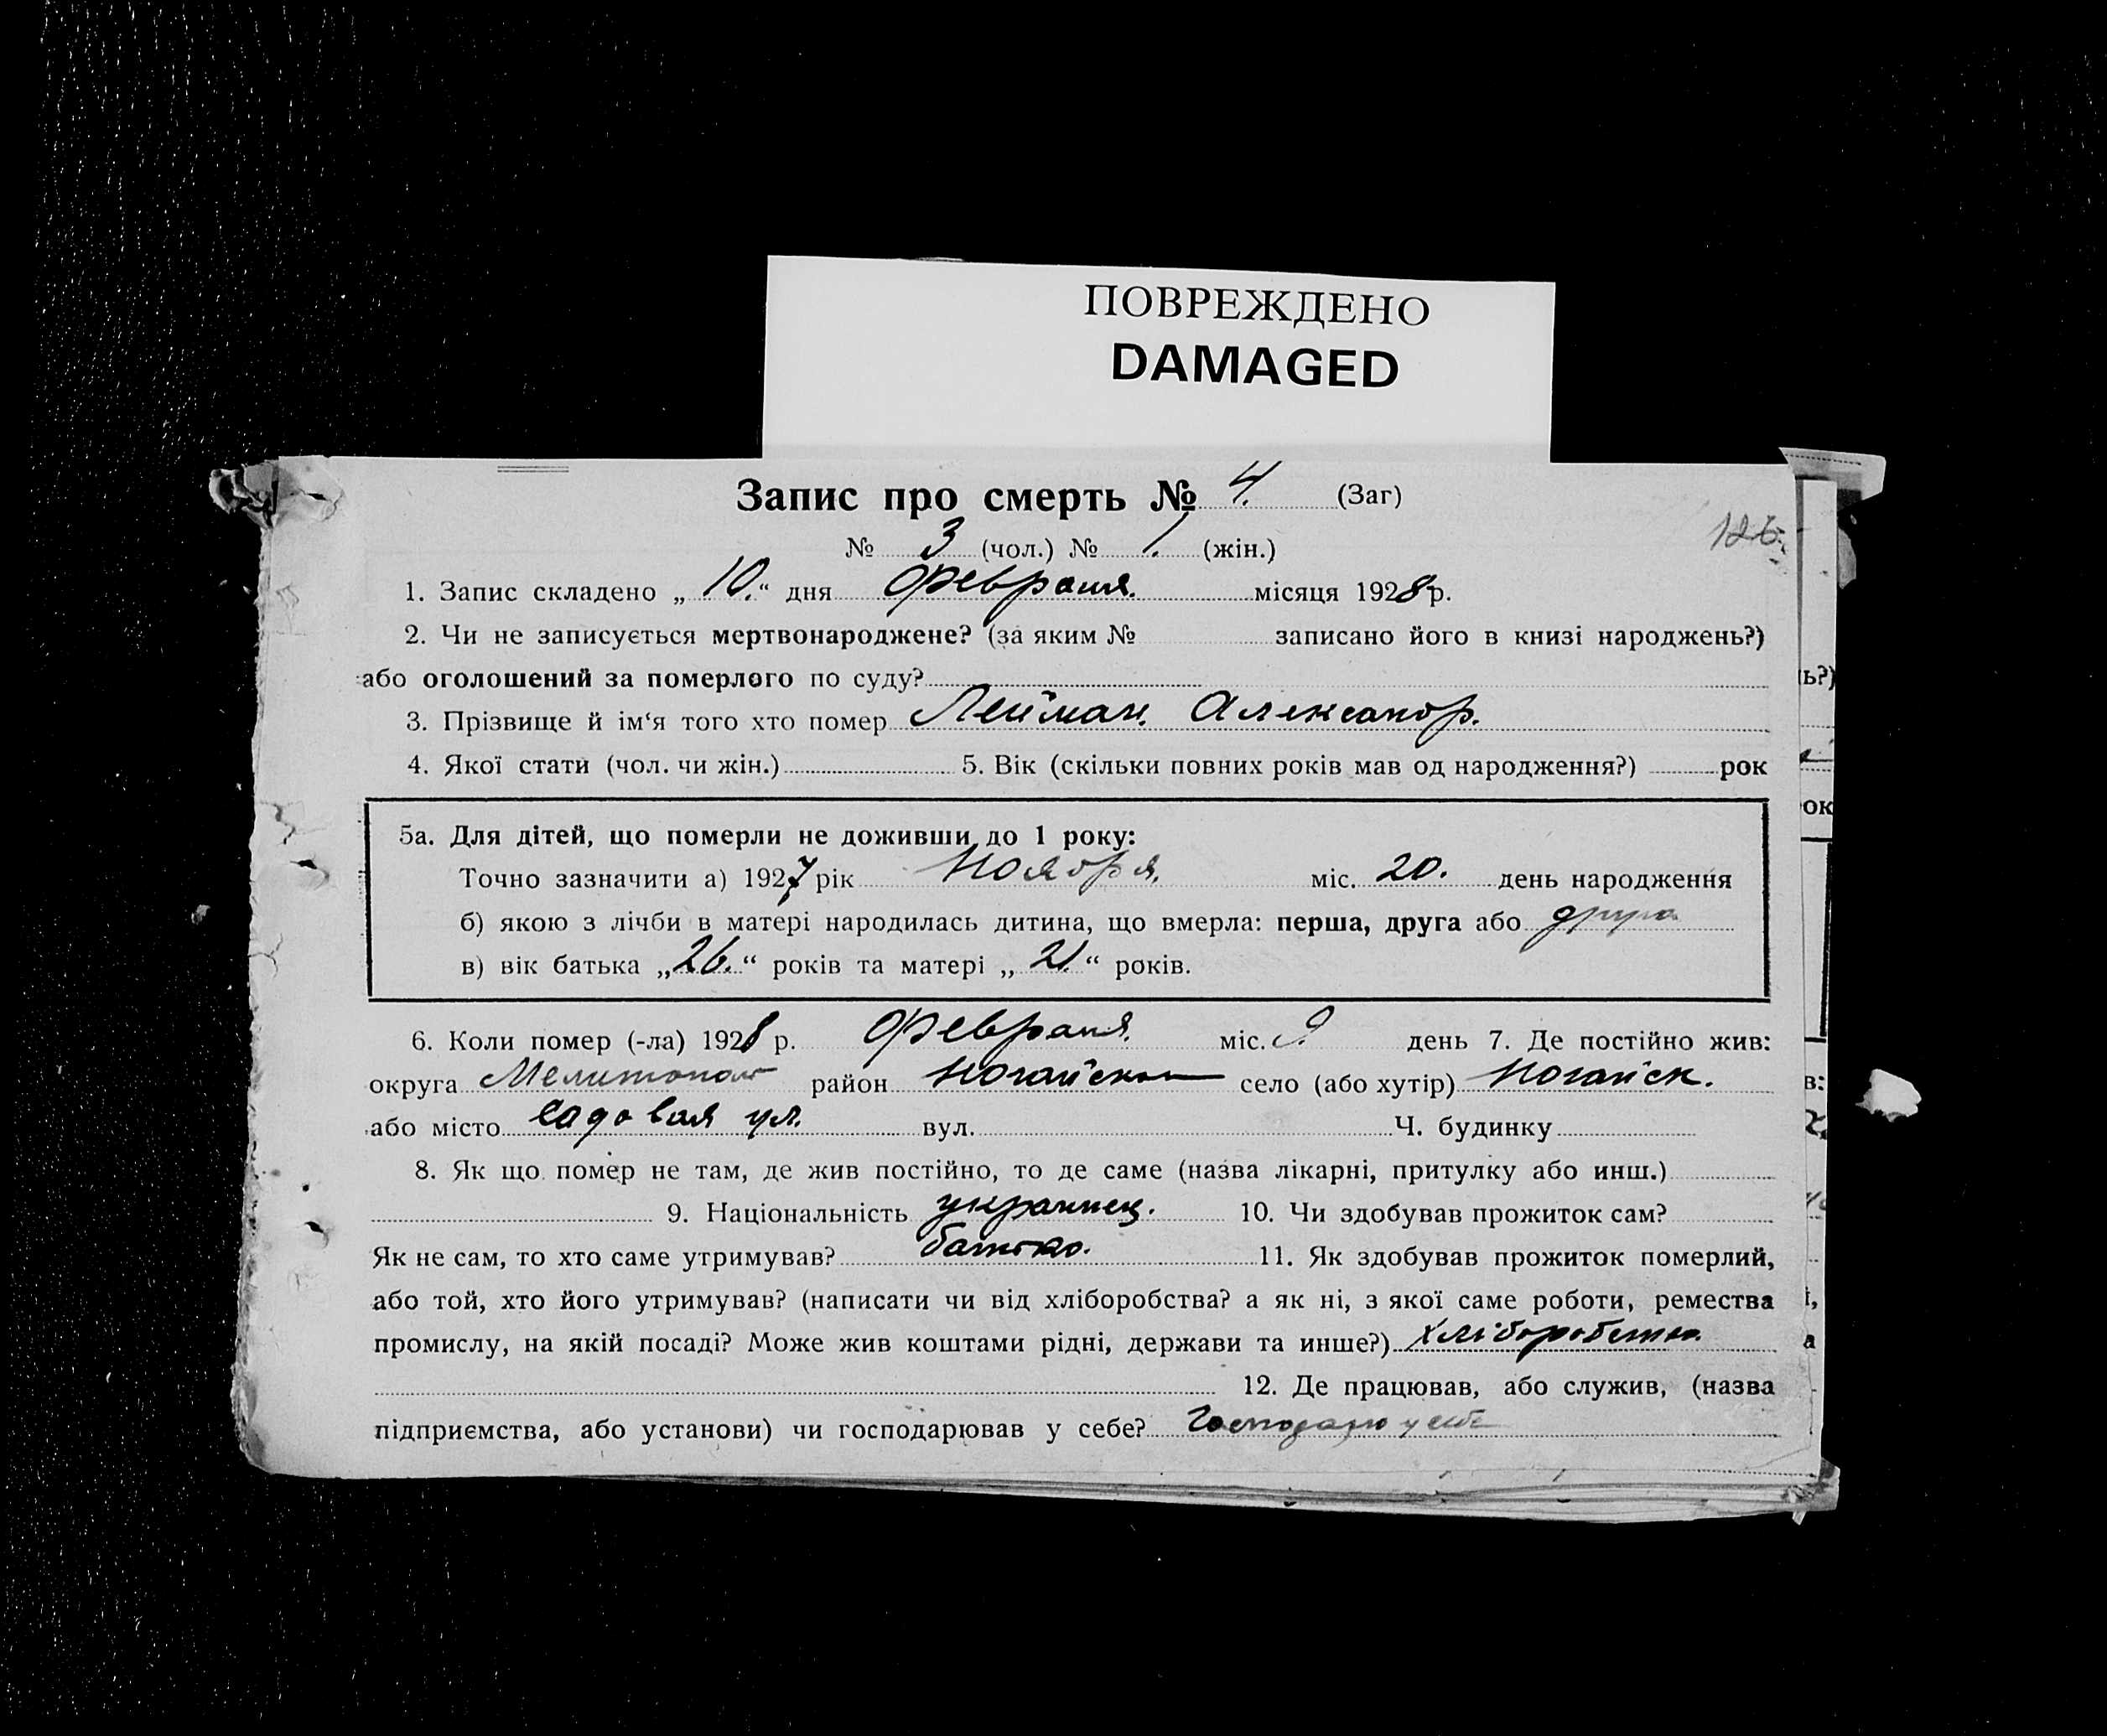 ПОВРЕЖДЕНО
DAMAGED
Запис про смерть № 4. (Заг)
№ 3 (чол.) № 1. (жін.)
126.
1. Запис складено „ 10. “ дня Февраля. місяця 1928 р.
2. Чи не записується мертвонароджене? (за яким № записано його в книзі народжень?)
або оголошений за померлого по суду?
3. Прізвище й ім‘я того хто помер Лейман. Александр.
4. Якої стати (чол. чи жін.) 5. Вік (скільки повних років мав од народження?) рок
5а. Для дітей, що померли не доживши до 1 року:
Точно зазначити а) 1927 рік Ноября. міс. 20. день народження
б) якою з лічби в матері народилась дитина, що вмерла: перша, друга або друга
в) вік батька „ 26. “ років та матері „ 21. “ років.
6. Коли помер (-ла) 1928 р. Февраля. міс. 9. день 7. Де постійно жив:
округа Мелитопол район Ногайском село (або хутір) Ногайск.
або місто Садовая ул. вул. Ч. будинку
8. Як що помер не там, де жив постійно, то де саме (назва лікарні, притулку або инш.)
9. Національність украинец. 10. Чи здобував прожиток сам?
Як не сам, то хто саме утримував? батько. 11. Як здобував прожиток померлий,
або той, хто його утримував? (написати чи від хліборобства? а як ні, з якої саме роботи, ремества
промислу, на якій посаді? Може жив коштами рідні, держави та инше?) хліборобство.
12. Де працював, або служив, (назва
підприємства, або установи) чи господарював у себе? Господарю у себе